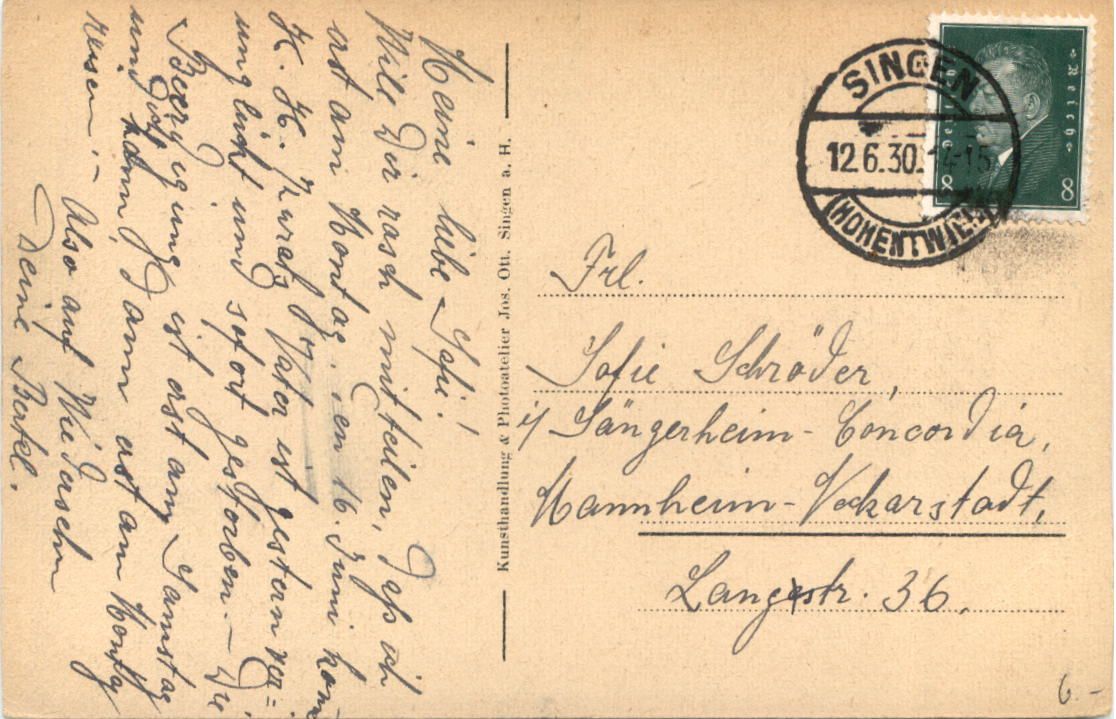 Meine liebe Sofie!
Will Dir rasch mitteilen, daß ich
erst am Montag, den 16. Juni kom
K. H. Vater ist gestern ver=
unglückt und sofort gestorben. – Die
Beerdigung ist erst am Samstag
und kann dann erst am Montag
reisen. – Also auf Wiedersehn
Deine Bertel.
Kunsthandlung & Photoatelier Jos. Ott. Singen a. H.
SINGEN
12.6.30. 14-15
(HOHENTWIEL)
Deutsches Reich
8 8
Frl.
Sofie Schröder,
i/ Sängerheim-Concordia,
Mannheim-Neckarstadt,
Langestr. 36.
6.-